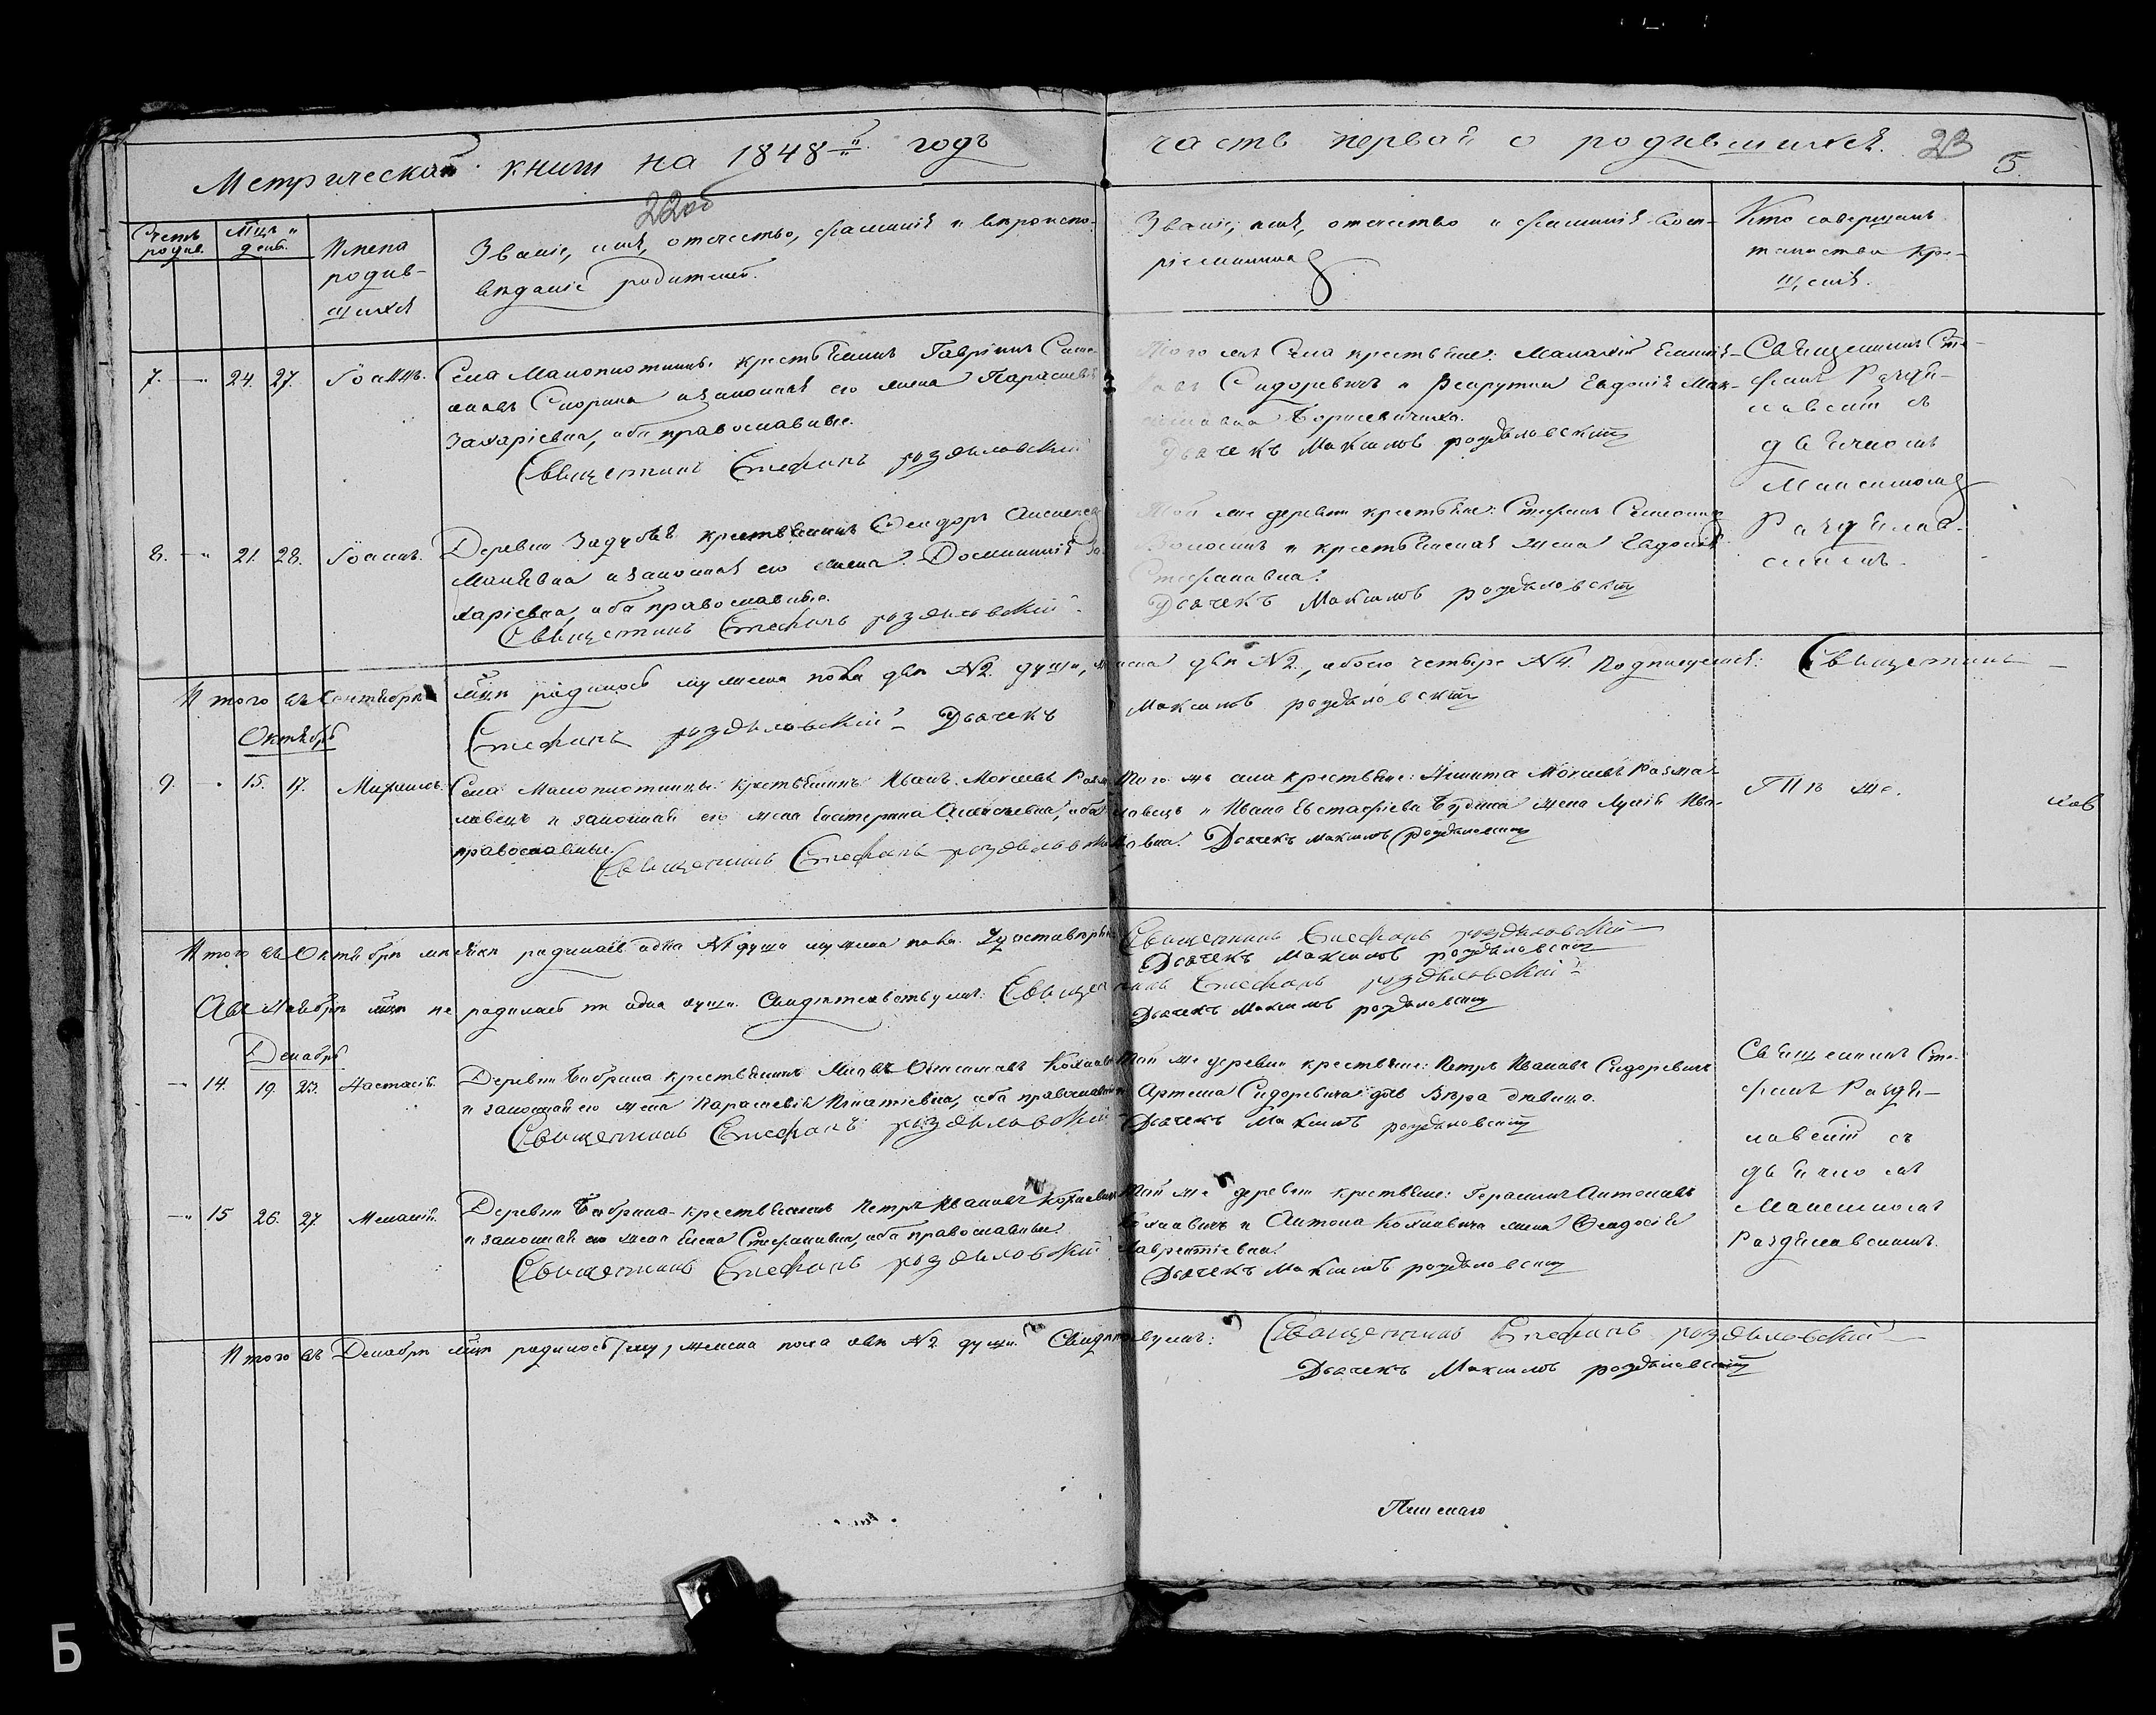 Метрической книги на 1848-й годъ
часть первая о родившихся. 23
5.
22об
Счетъ родив.
Мцъ и день.
Имена родив-
шихся
Званіе, имя, отчество, фамилія и вѣроиспо-
вѣданіе родителей.
Званіе, имя, отчество и фамилія восп-
ріемниковъ
Кто совершалъ
таинство кре-
щенія.
7. — " 24. 27. Іоаннъ.
Села Малоплотницы крестьянинъ Гавріилъ Симе-
оновъ Скорина и законная его жена Параскевія
Захаріевна, оба православные.
Священникъ Стефанъ Роздяловский
Того же Села крестьяне: Малахій
Сидоревичъ и Евдокія Мак-
симовна Борисевичиха.
Дьячекъ Максимъ Роздяловский
Священникъ Сте-
фанъ Раздя-
ловскій съ
дьячкомъ
Максимомъ
Раздялов-
скимъ.
8. — " 21. 28. Іоаннъ.
Деревни Задубья крестьянинъ Феодоръ
и законная его жена Доминикія За-
харіевна, оба православные.
Священникъ Стефанъ Роздяловский
Той же деревни крестьяне: Стефанъ
и крестьянская жена Евдокія
Стефановна.
Дьячекъ Максимъ Роздяловский
Итого въ Сентябрѣ мцѣ родилось мужеска пола двѣ №2. души, женска двѣ №2., обоего четыре №4. Подписуемся: Священникъ
Стефанъ Роздяловский Дьячекъ Максимъ Роздяловский
Октябрь
9. — " 15. 17. Михаилъ.
Села Малоплотницы крестьянинъ Иванъ Моисеевъ Разма-
ловецъ и законная его жена Екатерина Алексѣевна, оба
православные.
Священникъ Стефанъ Роздяловский
Того жъ села крестьяне: Никита Моисеевъ Разма-
ловецъ и Ивана Евстафіева жена Лукія Ива-
новна. Дьячекъ Максимъ Роздяловский
Тѣ же.
Итого въ Октябрѣ мѣсяцѣ родилась одна №1 душа мужеска пола.
Священникъ Стефанъ Роздяловский
Дьячекъ Максимъ Роздяловский
А въ Ноябрѣ мцѣ не родилась ни одна душа. Свидѣтельствуемъ: Священникъ Стефанъ Роздяловский
Дьячекъ Максимъ Роздяловский
Декабрь
— 14. 19. 23. Настасія.
Деревни Бобрика крестьянинъ
и законная его жена Параскевія Игнатіевна, оба православные
Священникъ Стефанъ Роздяловский
Той же деревни крестьяне: Петръ Ивановъ Сидоревичъ
и Артема Сидоревича дочь Вѣра дѣвица.
Дьячекъ Максимъ Роздяловский
Священникъ Сте-
фанъ Раздя-
ловскій съ
дьячкомъ
Максимомъ
Раздяловскимъ.
— " 15 26. 27. Меланія.
Деревни Бобрика крестьянинъ Петръ Ивановъ Кохновичъ
и законная его жена Елена Стефановна, оба православные.
Священникъ Стефанъ Роздяловский
Той же деревни крестьяне: Герасимъ Антоновъ
Кохновичъ и Антона Кохновича жена Феодосія
Лаврентіевна.
Дьячекъ Максимъ Роздяловский
Итого въ Декабрѣ мцѣ родилось женска пола двѣ №2 души. Свидѣтельствуемъ: Священникъ Стефанъ Роздяловский
Дьячекъ Максимъ Роздяловский
Б